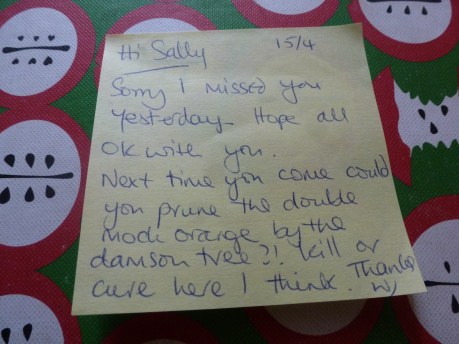 Hi Sally 15/4
Sorry I missed you
yesterday - Hope all
OK with you.
Next time you come could
you prune the double
mock orange by the
damson tree?! kill or
cure here I think. Thanks